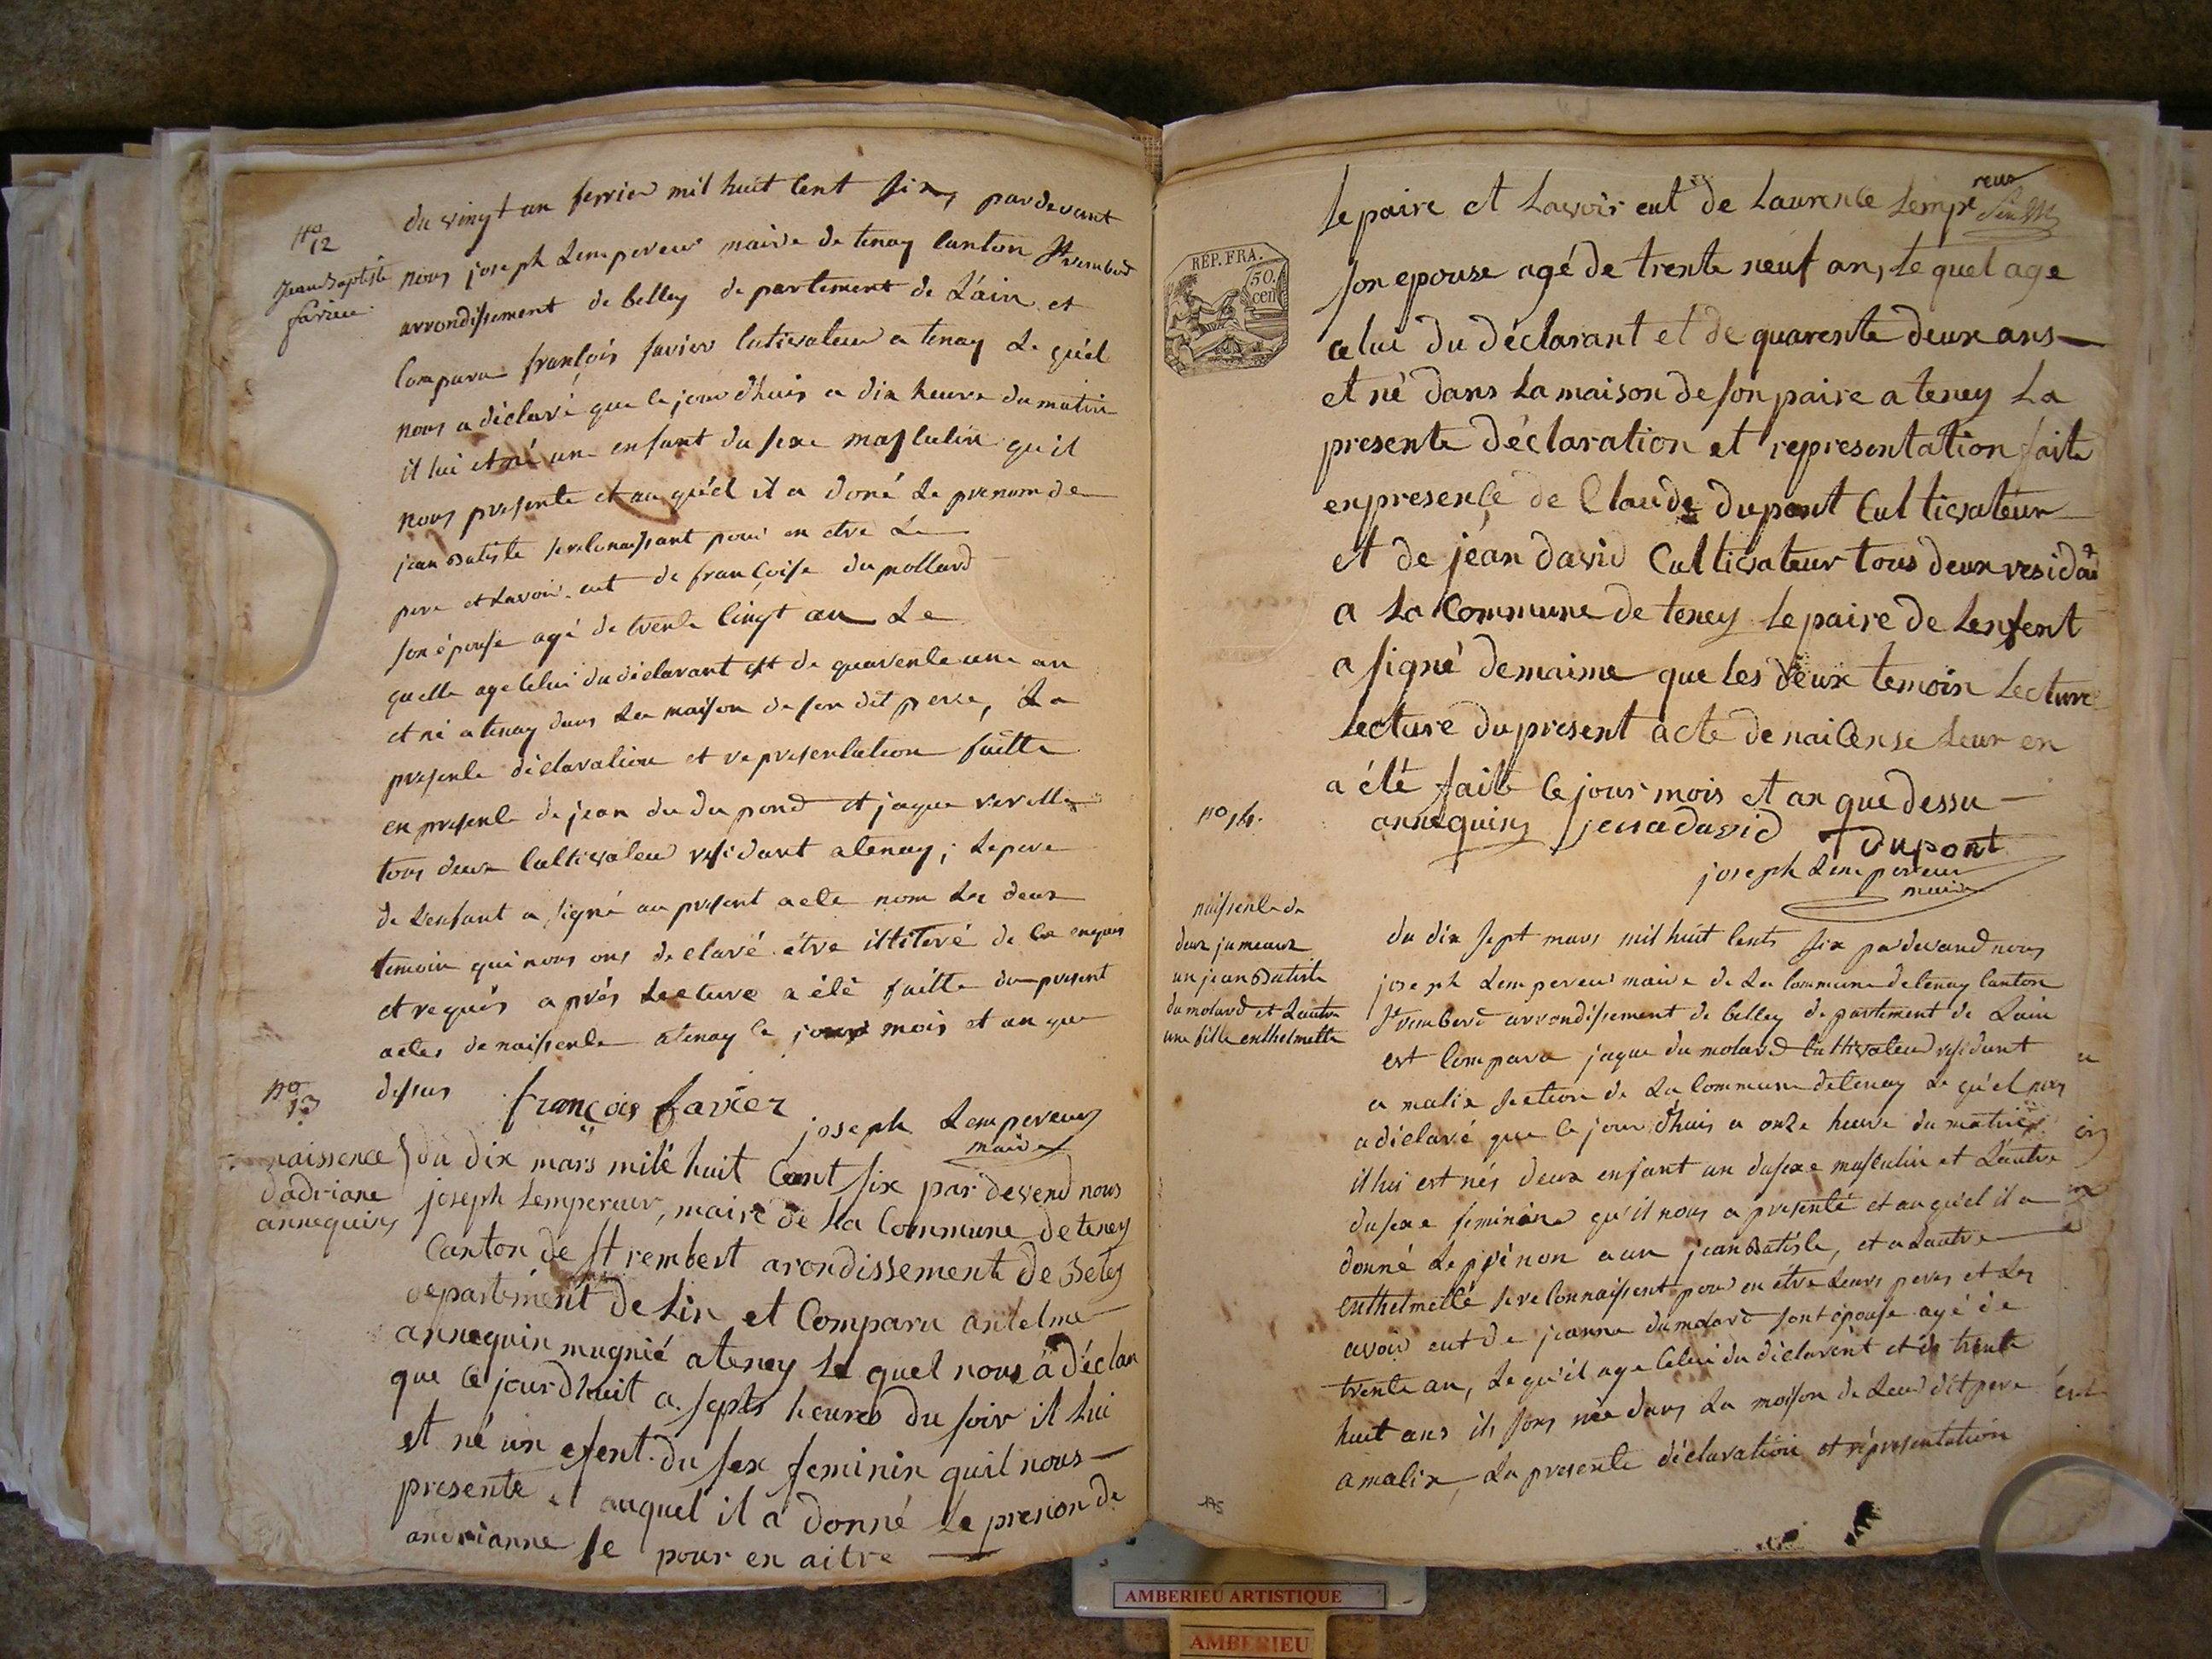 No
12
Jean Baptiste
favier
du vingt un fevrier mil huit Cent six, pardevant
nous joseph Lempereur maire de tenay Canton St rembert
arrondissement de belley departement de L'ain et
Comparu françois favier Cultivateur a tenay Le quel
nous a déclaré que ce jourdhuis a dix heures du matin
il lui et né un enfant du sexe masculin qu'il
nous presente et au quel il a doné Le prenom de
jean Batiste se reconaissant pour en etre Le
pere et Lavoir eut de françoise du mollard
son épouse agé de trente Cinqt an Le
quelle age Celui du déclarant est de quarente une an
et né a tenay dans La maison de son dit pere, La
presente déclaration et representation faitte
en presence de jean du du pond et jaque
tous deux Cultivateur residant a tenay; Le pere
de L'enfant a signé au present acte nom Les deux
temoin qui nous ons declaré être illitéré de ce enquis
et requis après Lecture a été faitte du present
actes de naissence a tenay le jour mois et an que
dessus
françois favier
joseph Lempereur
maire
no
13
naissence
dadriane
annequins
du dix mars milé huit Cent six par devend nous
joseph Lempereur, maire de La Commune de teney
Canton de St rembert arondissement de Beley
departément de Lin et Comparu antelme
annequin mugnié a teney Le quel nous a déclar
que Ce jourdhuit a septs heures du soir il Lui
et né un efent du sex feminin quil nous
presente et auquel il a donné Le prenon de
andrianne se pour en aitre
REP. FRA.
50.
cen
le paire et Lavoir eut de Laurence Lempe
reur
son epouse agé de trente neuf an, Le quel age
celui du déclarant et de quarente deux ans
et né dans La maison de son paire a teney La
presente déclaration et representation faite
en presençe de Claude dupont Cultivateur
et de jean david Cultivateur tous deux residant
a La Commune de teney Le paire de Lenfent
a signé demaime que les deux temoin Lecture
Lecture du present acte de naicense Leur en
a été faite Ce jour mois et an que dessu
annequins jean david Dupont
joseph Lempereur
maire
no 14.
naissence de
deux jumeaux
un jean Batiste
du molard et Lautre
une fille enthelmette
du dix sept mars mil huit Cents six par devand nous
joseph Lempereur maire de La Commune de tenay Canton
St rembert arrondissement de belley departement de Lain
est Compara jaque du molard Cultivateur residant
a malix section de La Commune de tenay Le qu'el nous
a déclaré que Ce jour d'huis a onze heure du matin
il lui est nés deux enfant un du sexe masculin et L'autre
du sexe feminine qu'il nous a presenté et au quel il a
donné Le prénon a un jean Batiste, et a Lautre
enthelmette se reconnaissent pour en étre Leurs peres et Les
avoir eut de jeanne dumolard sont épouse agé de
trente an, Le qu'il age Celui du déclarent et de trente
huit ans ils sons née dans La maison de Leur dit pere
a malix, La presente déclaration et répresentation
AMBERIEU ARTISTIQUE
AMBERIEU